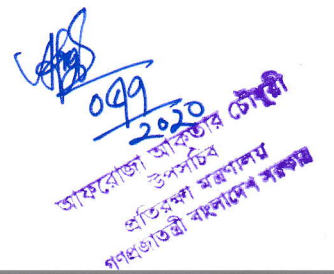 2020
আফরোজা আকতার চৌধুরী
উপসচিব
প্রতিরক্ষা মন্ত্রণালয়
গণপ্রজাতন্ত্রী বাংলাদেশ সরকার